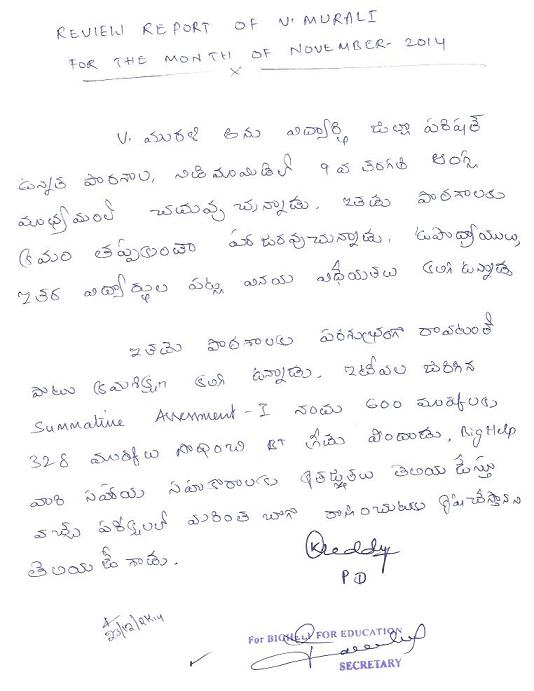 REVIEW REPORT OF V. MURALI
FOR THE MONTH OF NOVEMBER - 2014
X
V. మురళి అను విద్యార్థి జిల్లా పరిషత్
ఉన్నత పాఠశాల, 9 వ తరగతి ఆంగ్ల
మాధ్యమంలో చదువు చున్నాడు. ఇతడు పాఠశాలకు
క్రమం తప్పకుండా హాజరవుచున్నాడు. ఉపాధ్యాయులు,
ఇతర విద్యార్థుల పట్ల వినయ విధేయతలు కలిగి ఉన్నాడు
ఇతడు పాఠశాలకు పరిశుభ్రంగా రావటంతో
పాటు క్రమశిక్షణ కలిగి ఉన్నాడు. ఇటీవల జరిగిన
Summative Assessment - I నందు 600 మార్కులకు
328 మార్కులు సాధించి B+ గ్రేడు పొందాడు. Big Help
వారి సహాయ సహకారాలకు కృతజ్ఞతలు తెలియ చేస్తూ
వచ్చే పరీక్షలలో మరింత బాగా రాయుటకు కృషి చేస్తానని
తెలియజేశాడు.
KReddy
PD
23/12/2014
For BIGHELP FOR EDUCATION
SECRETARY